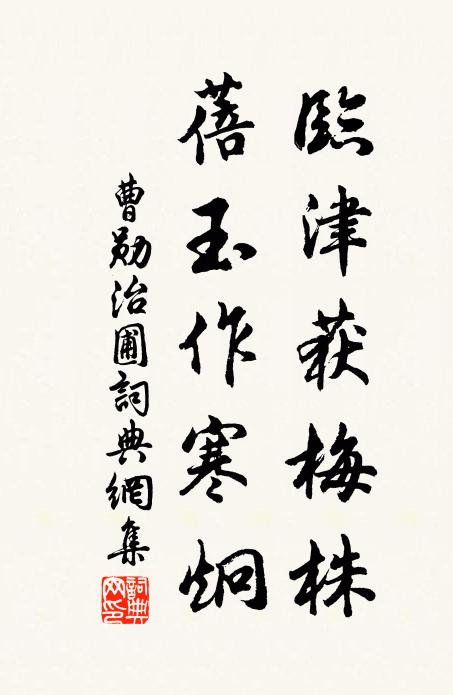 臨津获梅株
蓓玉作寒炯
曹勛治圃詞典網集
詞典網印